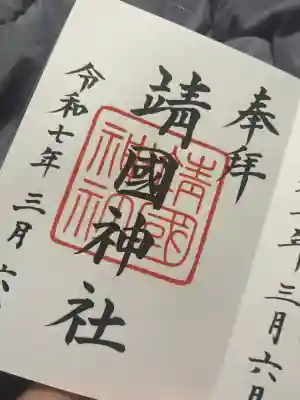 奉拝
靖國神社
令和七年三月六
靖國神社
年三月六日